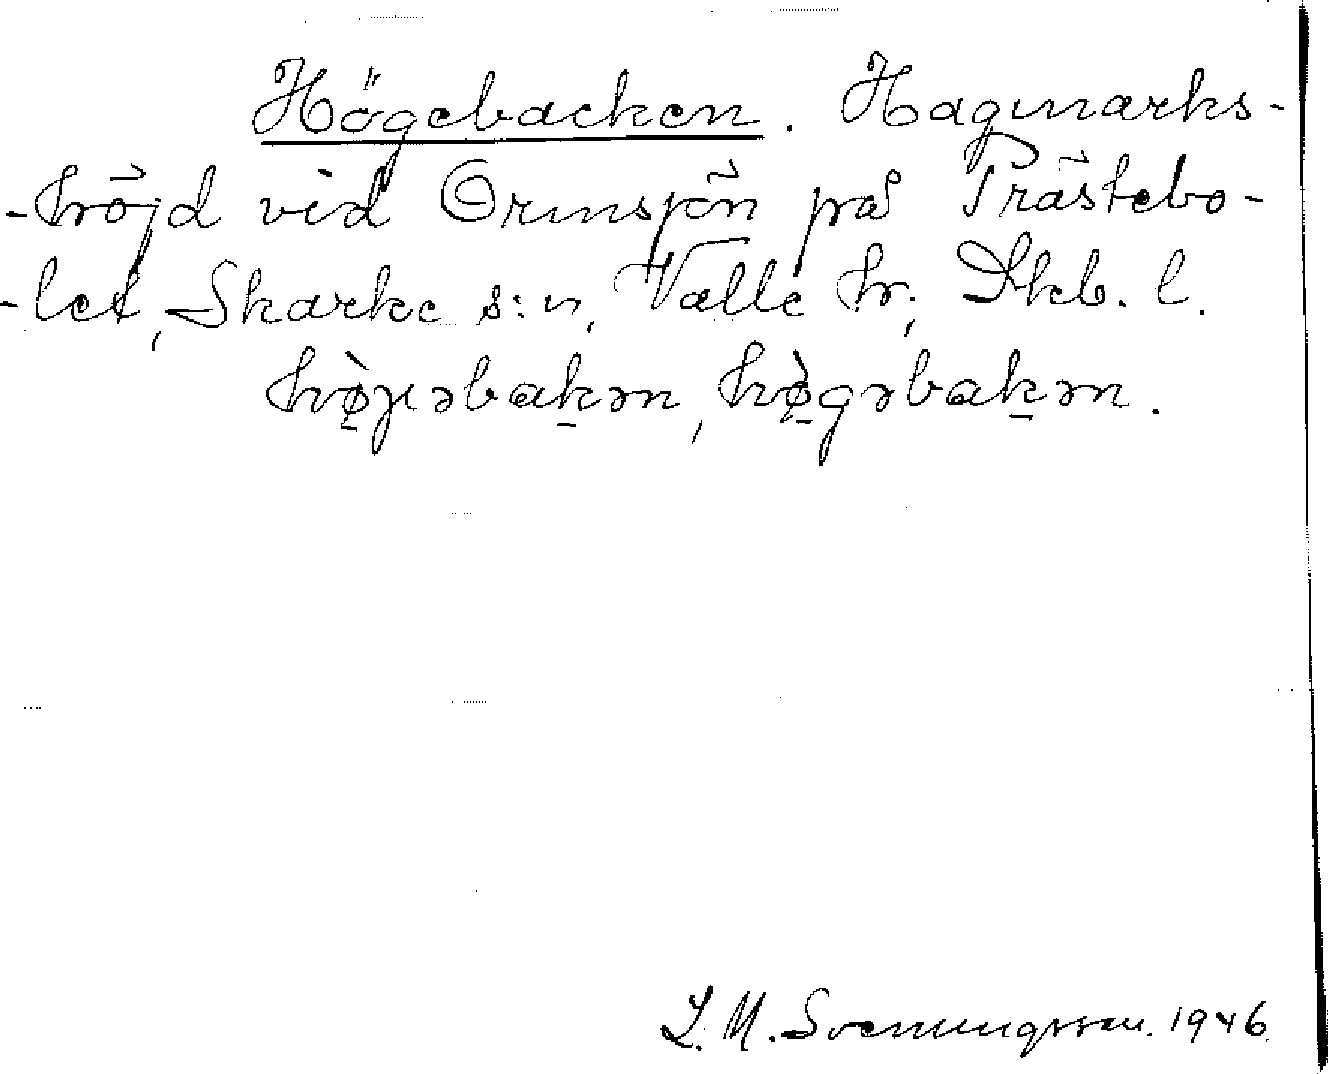 Högebacken. Hagmarks-
-höjd vid Ormsjön på Prästebo-
-let, Skarke s:n, Valle hr, Skb. l.
hø̀ɲəbakən, hø̀gəbakən.
L. M. Svenungsson. 1946